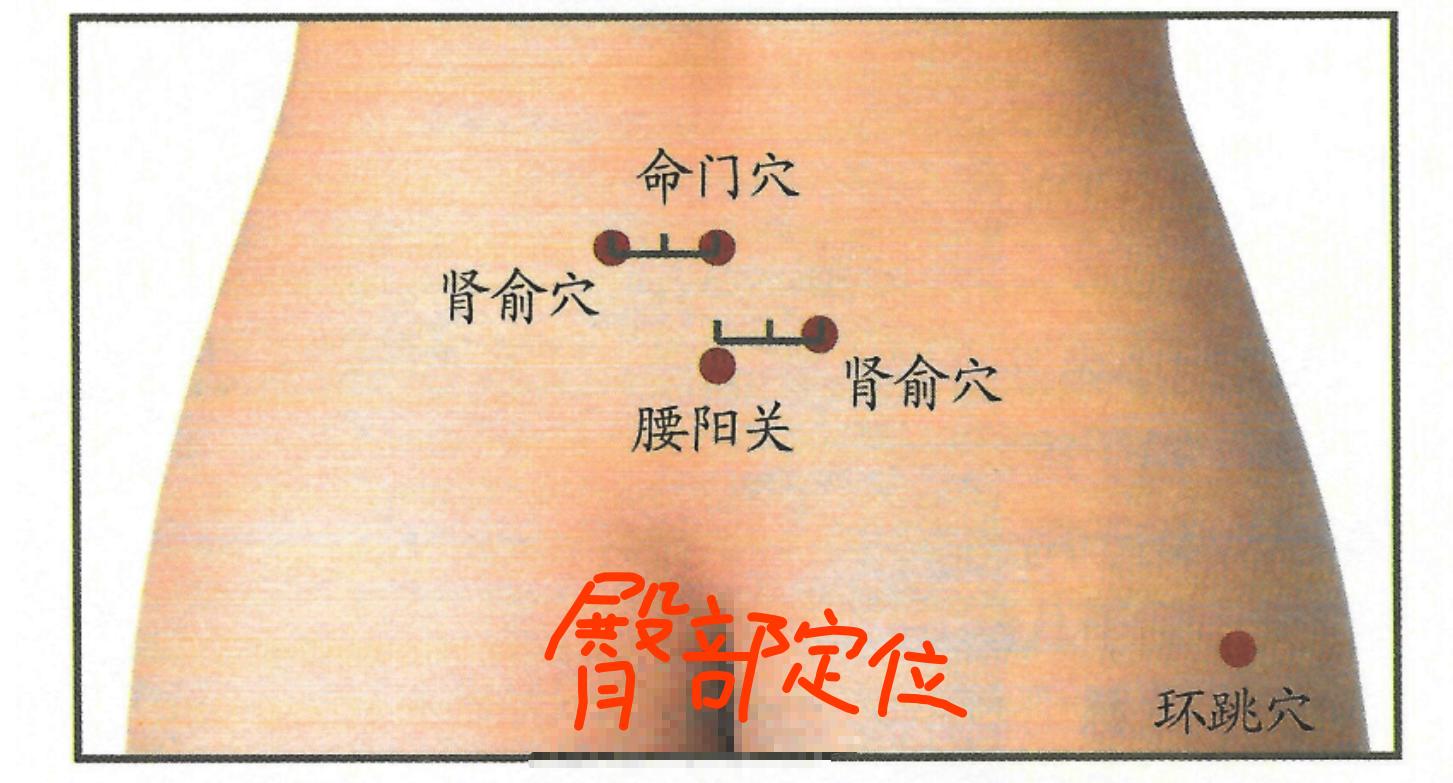 命门穴
肾俞穴
肾俞穴
腰阳关
臀部定位
环跳穴